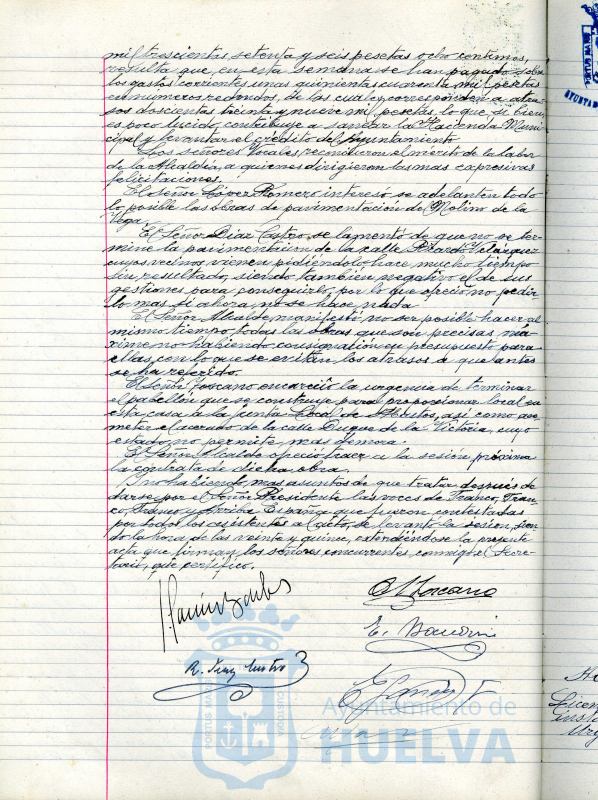 mil trescientas setenta y seis pesetas ocho centimos,
resulta que, en esta semana se han pagado sobre
los gastos corrientes unas quinientas cuarenta mil pesetas
en numeros redondos, de las cuales corresponden a atra-
sos doscientas treinta y nueve mil pesetas, lo que si bien
es poco lucido contribuye a sanear la Hacienda Muni-
cipal y levantar el crédito del Ayuntamiento.
Los señores Vocales reconocieron el mérito de la labor
de la Alcaldía, a quien dirigieron las mas expresivas
felicitaciones.
El Señor Romero interesó se adelanten todo
lo posible las obras de pavimentación de Molino de la
Vega.
El Señor Diaz Castro, se lamentó de que no se ter-
mine la pavimentación de la calle Velázquez
cuyos vecinos vienen pidiéndolo hace mucho tiempo
sin resultado, siendo tambien negativo el de sus
gestiones para conseguirlo, por lo que ofreció no pedir
lo mas si ahora, no se hace nada.
El Señor Alcalde, manifestó no ser posible hacer al
mismo tiempo todas las obras que son precisas, má-
xime no habiendo consignación en presupuesto para
ellas, con lo que se evitan los atrasos de que antes
se ha referido.
El Señor Toscano encareció la urgencia de terminar
el pabellón que se construye para proporcionar local en
esta casa a la Junta Local de, así como aco-
meter el acerado de la calle Duque de la Victoria, cuyo
estado no permite mas demora.
El Señor Alcalde ofreció traer a la sesión próxima
la contrata de dicha obra.
Y no habiendo mas asuntos de que tratar después de
darse por el Señor Presidente las voces de Franco, Fran-
co, Franco y Arriba España que fueron contestadas
por todos los asistentes al acto, se levantó la sesion, sien-
do la hora de las veinte y quince, extendiéndose la presente
acta que firman los señores concurrentes, conmigo el Secre-
tario, que certifico.
Toscano
R. Diaz Castro
E.
Ayuntamiento de
HUELVA